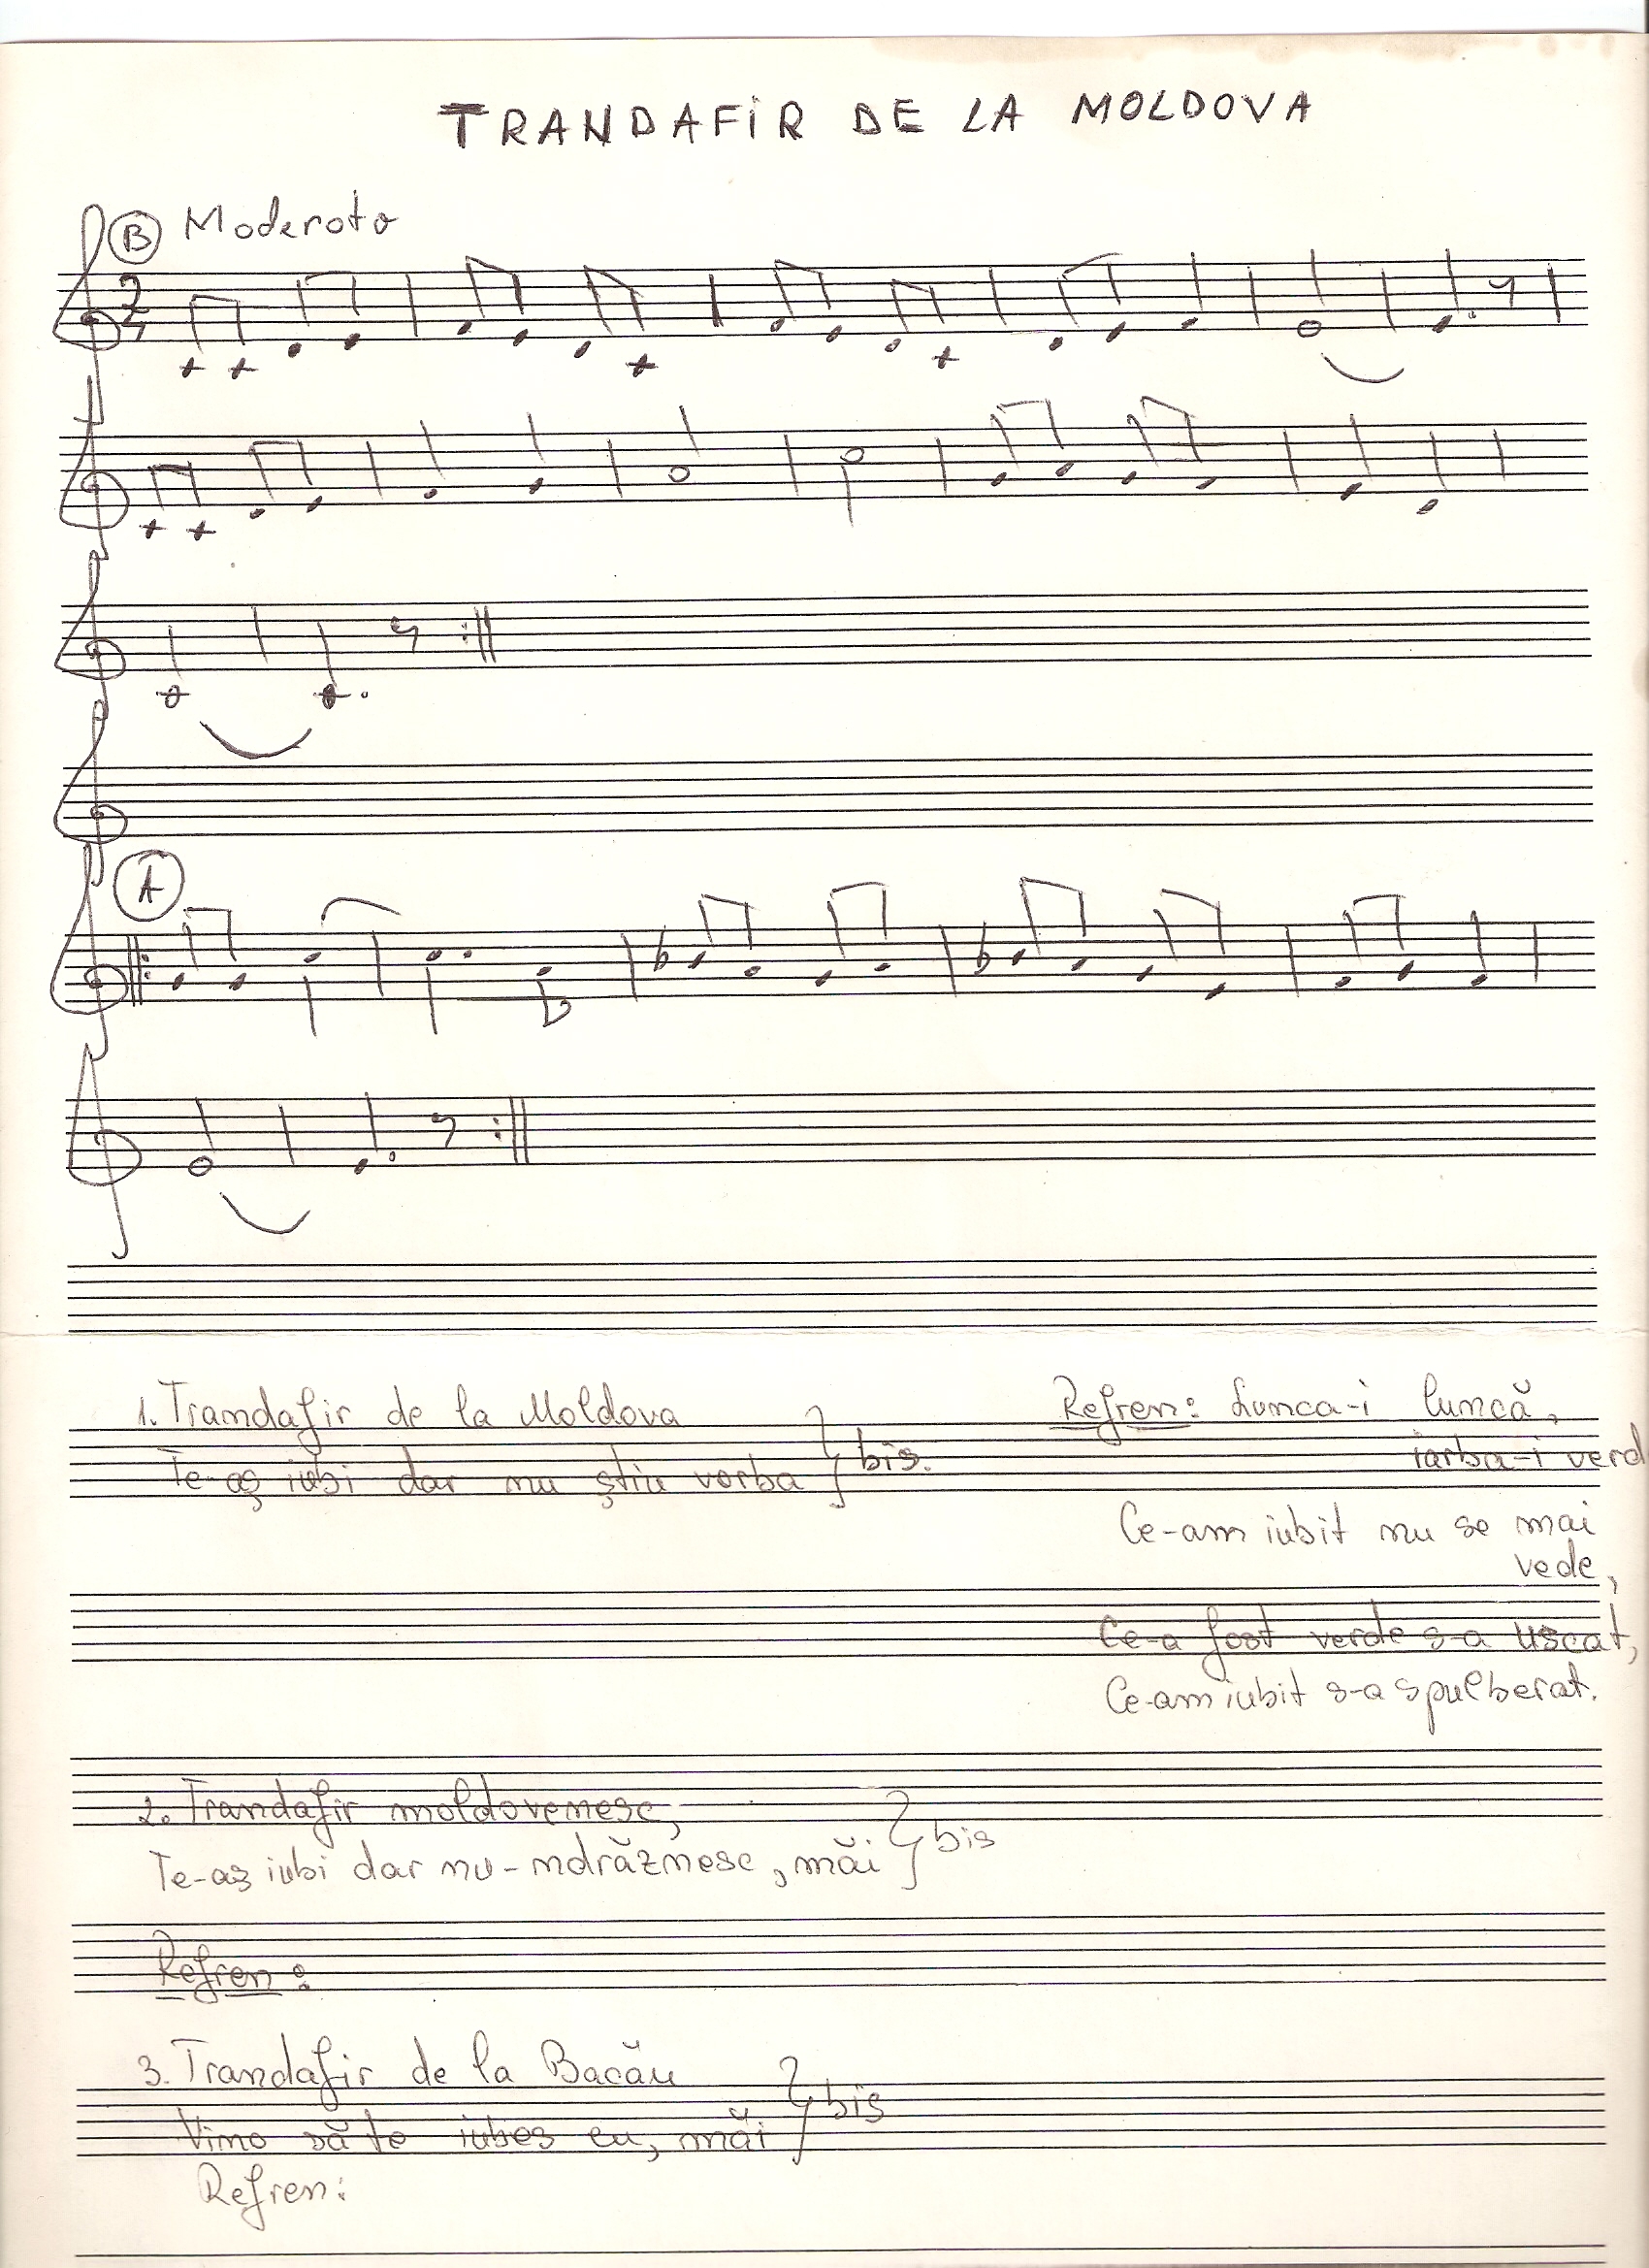 TRANDAFIR DE LA MOLDOVA
B Moderato
2
4
A
1. Trandafir de la Moldova
Te-aș iubi dar nu știu vorba } bis.
Refren: Lunca-i luncă,
iarba-i verd
Ce-am iubit nu se mai
vede,
Ce-a fost verde s-a uscat,
Ce-am iubit s-a spulberat.
2. Trandafir moldovenesc,
Te-aș iubi dar nu-ndrăznesc, măi } bis
Refren:
3. Trandafir de la Bacău
Vino să te iubes eu, măi } bis
Refren: